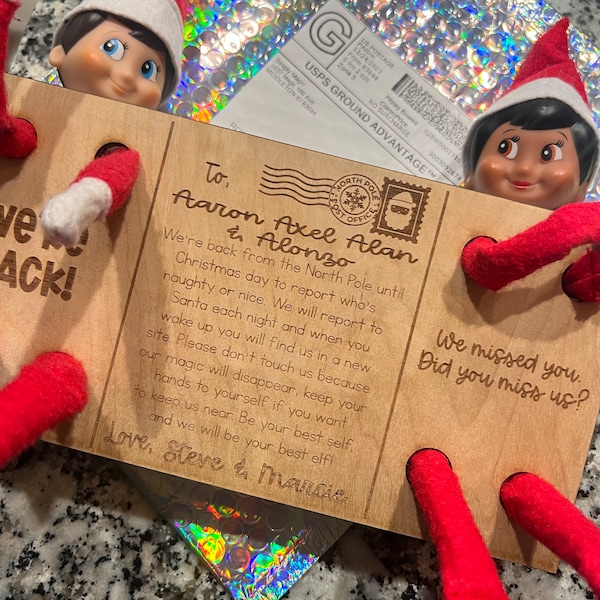 We're
BACK!
To,
NORTH POLE
POST OFFICE
Aaron Axel Alan
& Alonzo
We're back from the North Pole until
Christmas day to report who's
naughty or nice. We will report to
Santa each night and when you
wake up you will find us in a new
site. Please don't touch us because
our magic will disappear, keep your
hands to yourself if you want
to keep us near. Be your best self,
and we will be your best elf!
Love, Steve & Marcie
We missed you.
Did you miss us?
G
USPS GROUND ADVANTAGE™